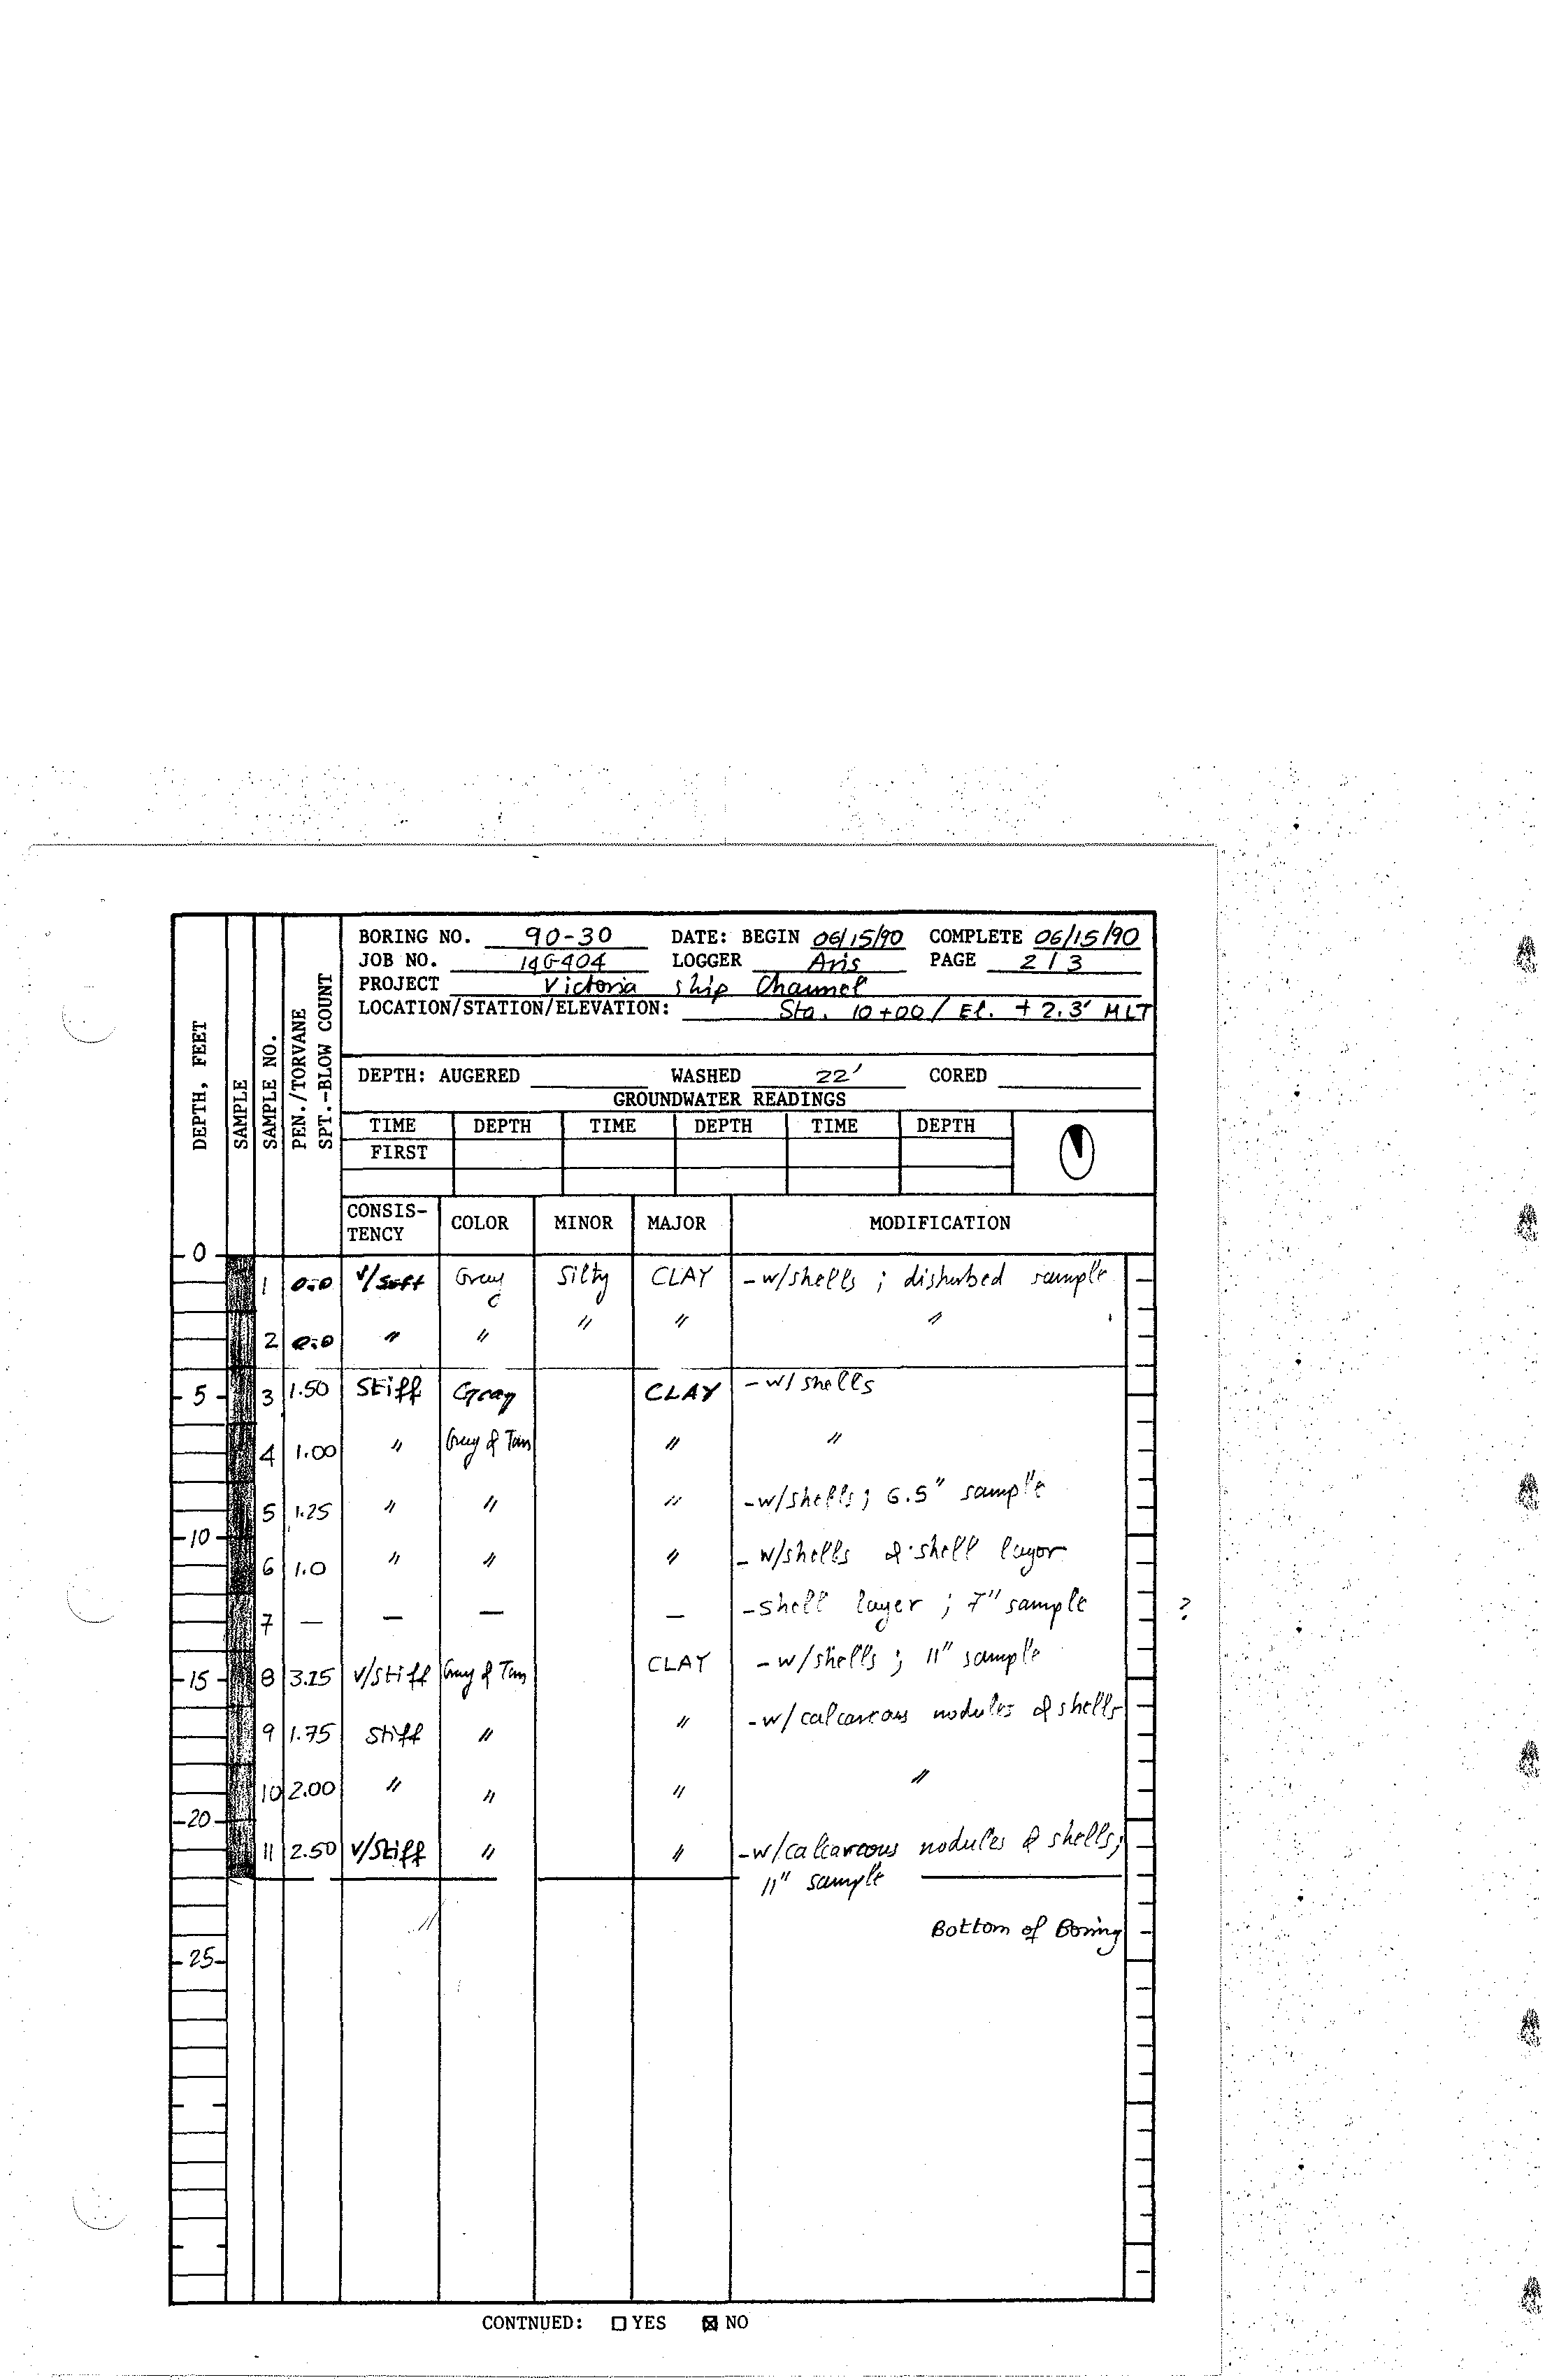 BORING NO. 90-30 DATE: BEGIN 06/15/90 COMPLETE 06/15/90
JOB NO. LOGGER Aris PAGE 2/3
PROJECT Victoria Ship Channel
LOCATION/STATION/ELEVATION: Sta. 10+00/ El. + 2.3' MLT
DEPTH, FEET
SAMPLE
SAMPLE NO.
PEN./TORVANE
SPT.-BLOW COUNT
DEPTH: AUGERED WASHED 22' CORED
GROUNDWATER READINGS
TIME DEPTH TIME DEPTH TIME DEPTH
FIRST
CONSIS-
TENCY COLOR MINOR MAJOR MODIFICATION
0
1 0.0 v/soft Gray Silty CLAY -w/shells ; disturbed sample
2 0.0 " " " " "
5 3 1.50 Stiff Gray CLAY -w/shells
4 1.00 " Gray & Tan " "
5 1.25 " " " -w/shells; 6.5" sample
10
6 1.0 " " " -w/shells & shell layer
7 — — — — -shell layer ; 7" sample ?
15 8 3.25 v/stiff Gray & Tan CLAY -w/shells ; 11" sample
9 1.75 Stiff " " -w/calcareous nodules & shells
10 2.00 " " " "
20
11 2.50 v/stiff " " -w/calcareous nodules & shells;
11" sample
Bottom of Boring
25
CONTNUED: ☐ YES ☒ NO